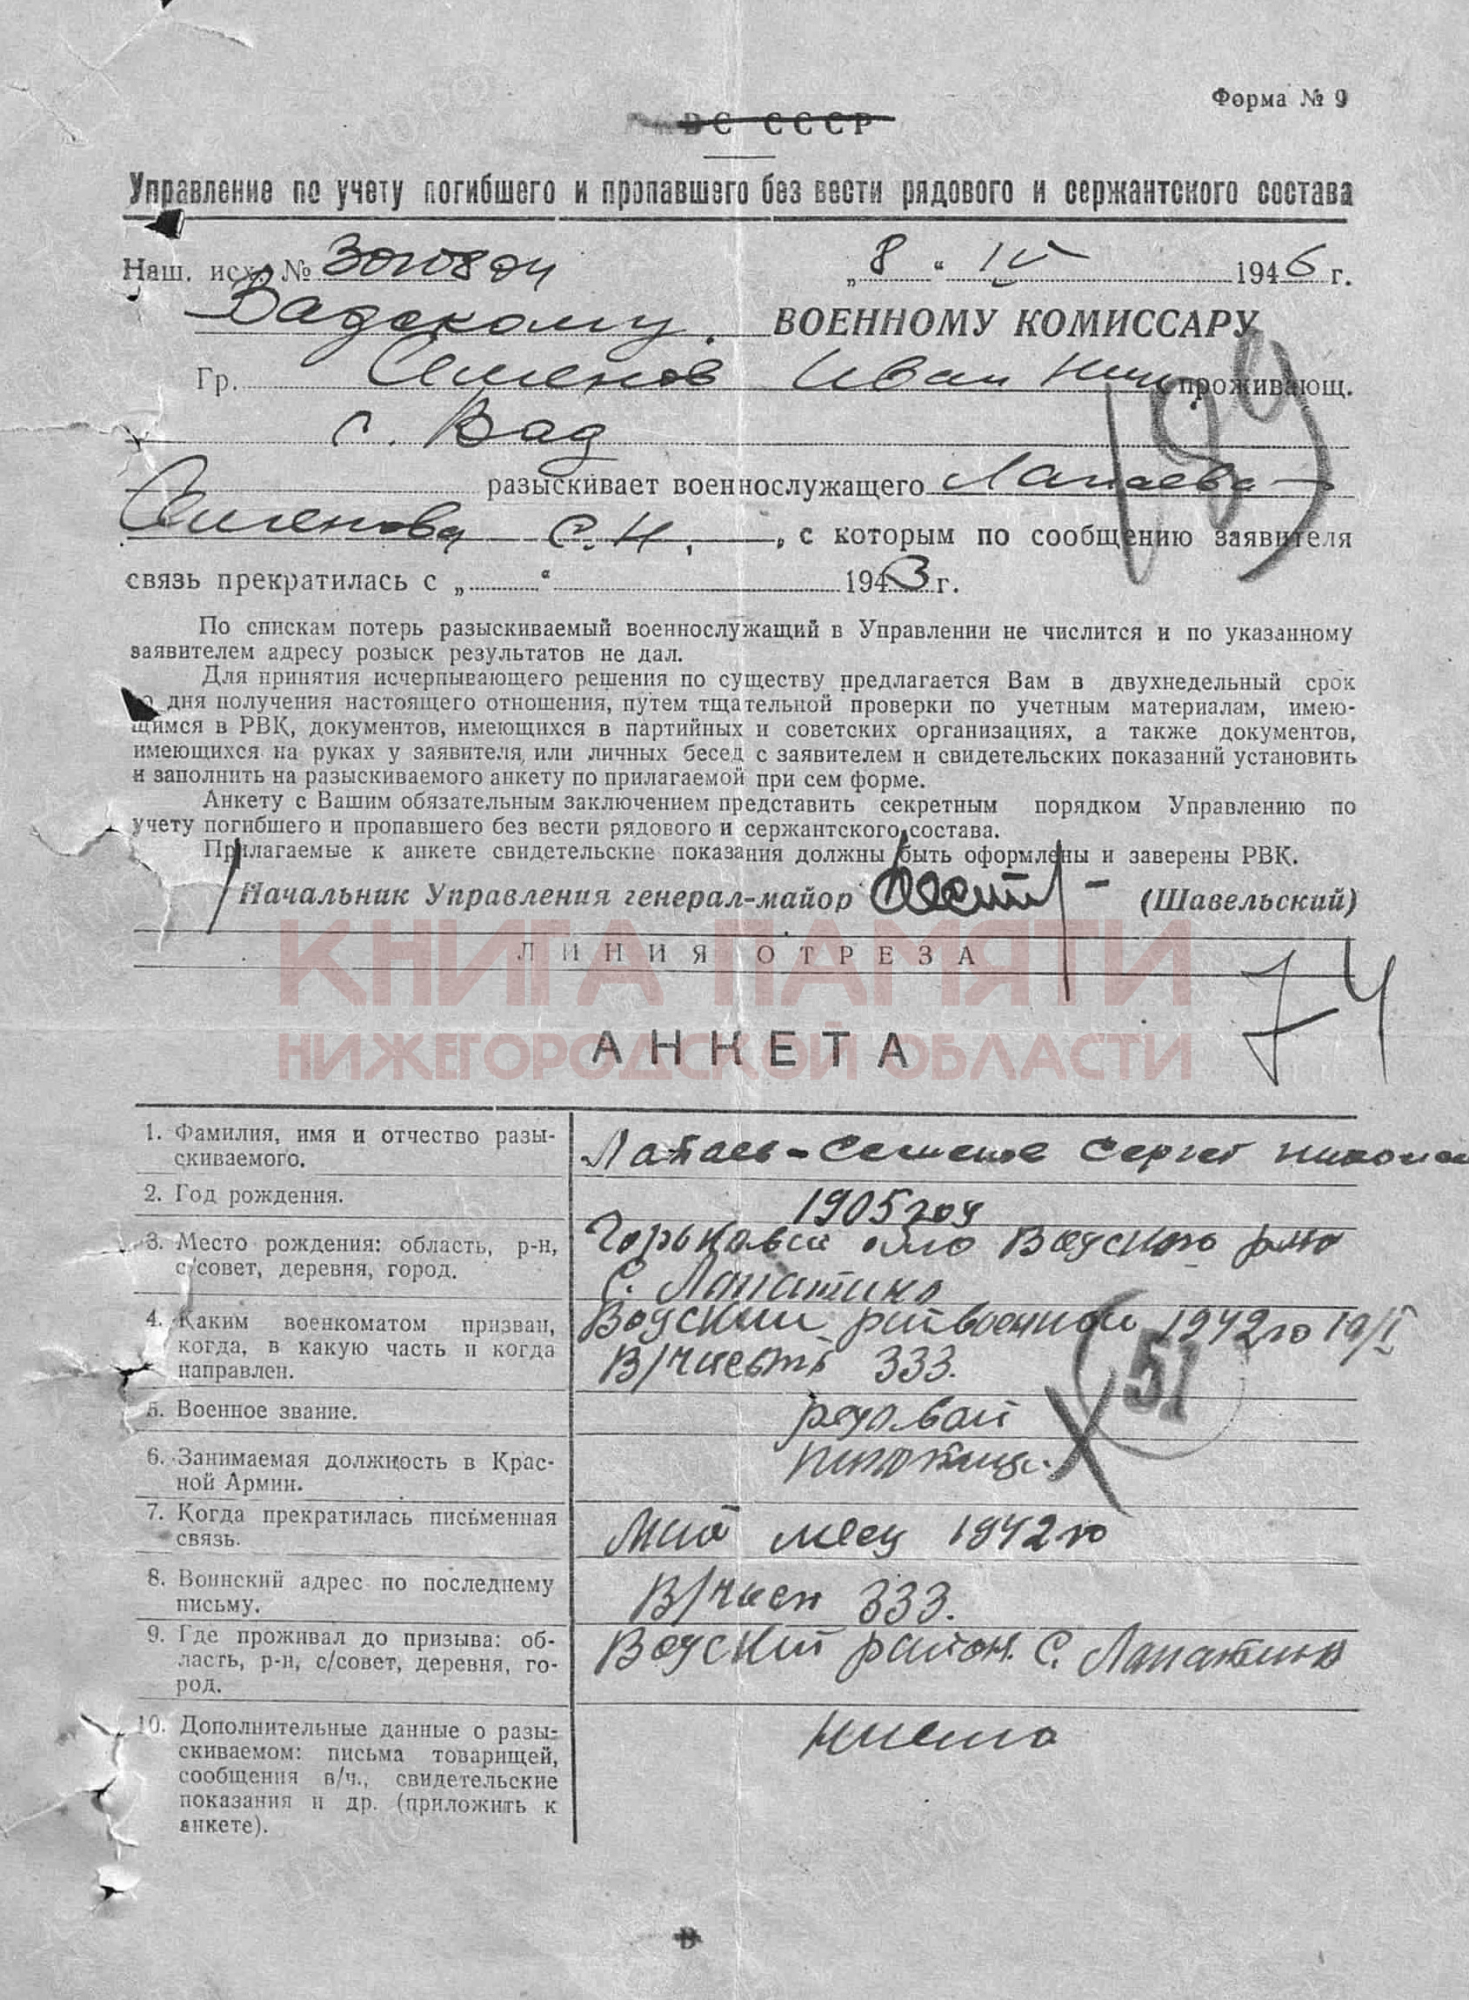 Форма № 9
ВС СССР
Управление по учету погибшего и пропавшего без вести рядового и сержантского состава
Наш. исх. № „8“ IV 1946 г.
Вадскому ВОЕННОМУ КОМИССАРУ
Гр. Семенов Иван Ник проживающ.
с. Вад
189
разыскивает военнослужащего Лапаева-
Семенова С.Н., с которым по сообщению заявителя
связь прекратилась с „ “ 1943 г.
По спискам потерь разыскиваемый военнослужащий в Управлении не числится и по указанному
заявителем адресу розыск результатов не дал.
Для принятия исчерпывающего решения по существу предлагается Вам в двухнедельный срок
со дня получения настоящего отношения, путем тщательной проверки по учетным материалам, имею-
щимся в РВК, документов, имеющихся в партийных и советских организациях, а также документов,
имеющихся на руках у заявителя, или личных бесед с заявителем и свидетельских показаний установить
и заполнить на разыскиваемого анкету по прилагаемой при сем форме.
Анкету с Вашим обязательным заключением представить секретным порядком Управлению по
учету погибшего и пропавшего без вести рядового и сержантского состава.
Прилагаемые к анкете свидетельские показания должны быть оформлены и заверены РВК.
Начальник Управления генерал-майор (Шавельский)
ЛИНИЯ ОТРЕЗА
КНИГА ПАМЯТИ
НИЖЕГОРОДСКОЙ ОБЛАСТИ
74
АНКЕТА
1. Фамилия, имя и отчество разы-
скиваемого.
Лапаев-Семенов Сергей Николаев
2. Год рождения.
1905 году
3. Место рождения: область, р-н,
с/совет, деревня, город.
Горьковск обло Вадского р-но
С. Лапатино
4. Каким военкоматом призван,
когда, в какую часть и когда
направлен.
Вадским 1942 го 19/I
В/часть 333.
51
5. Военное звание.
редовой
6. Занимаемая должность в Крас-
ной Армии.
7. Когда прекратилась письменная
связь.
Май месц 1942 го
8. Воинский адрес по последнему
письму.
В/част 333.
9. Где проживал до призыва: об-
ласть, р-н, с/совет, деревня, го-
род.
Вадский район. С. Лапатино
10. Дополнительные данные о разы-
скиваемом: письма товарищей,
сообщения в/ч., свидетельские
показания и др. (приложить к
анкете).